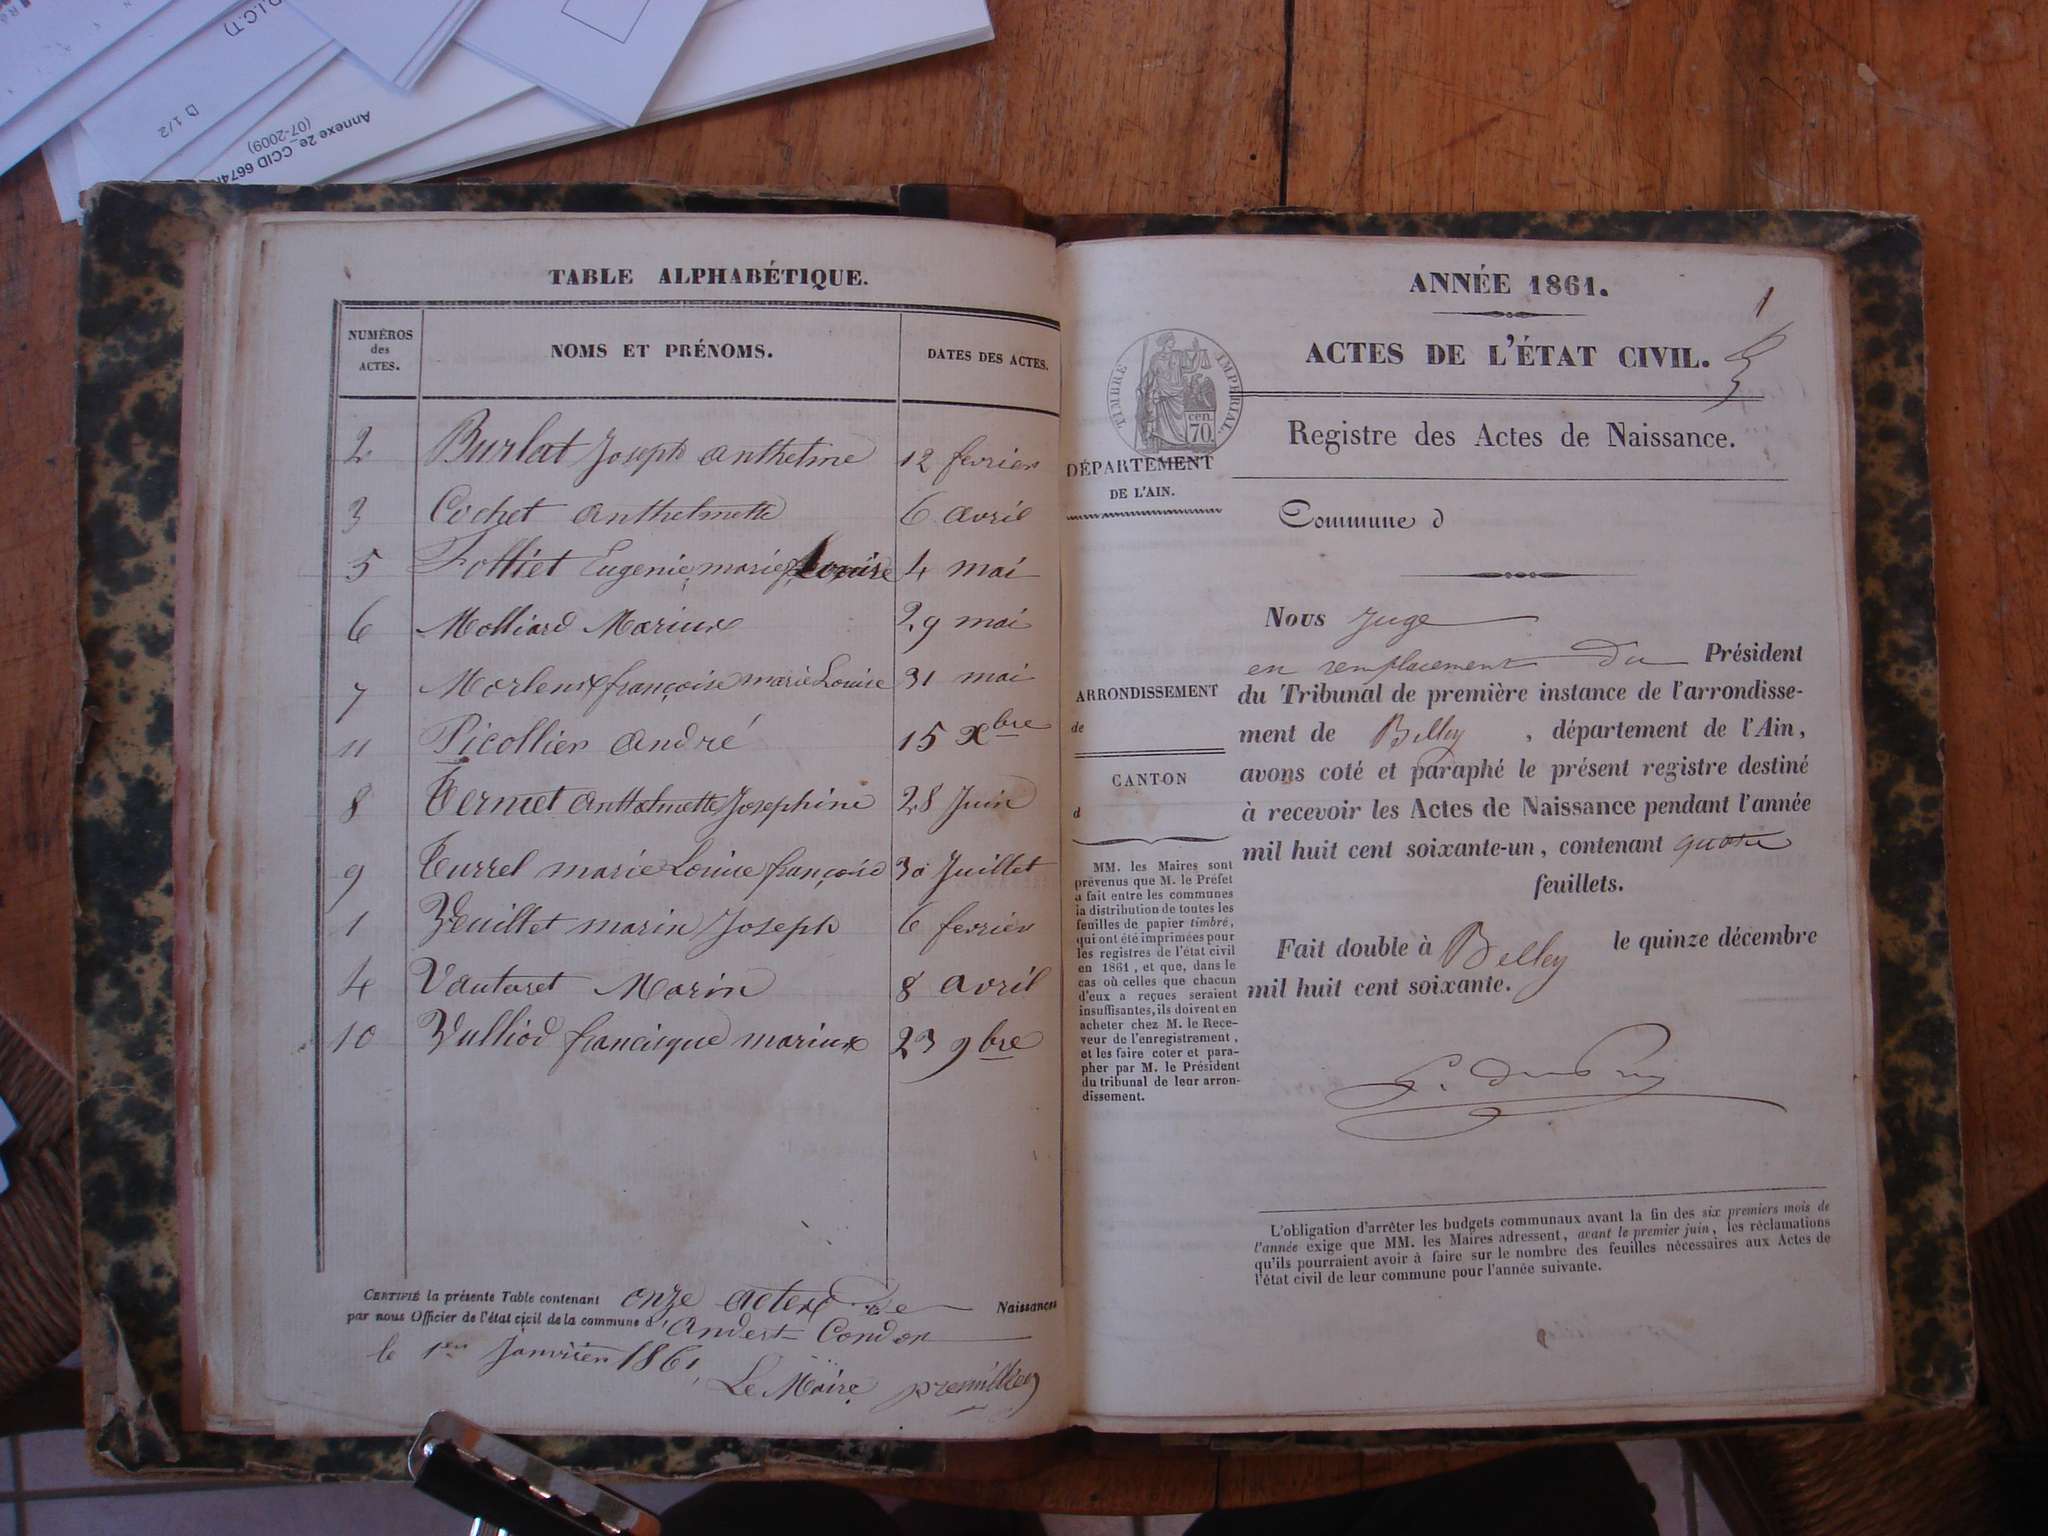 D.I.C.T)
D 1/2
Annexe 2e_CCID 6674
(07-2009)
TABLE ALPHABÉTIQUE.
NUMÉROS des ACTES. NOMS ET PRÉNOMS. DATES DES ACTES.
2 Burlat Joseph anthelme 12 fevrier
3 Cochet anthelmette 6 avril
5 Folliet Eugenie marie Louise 4 mai
6 Molliard Marius 29 mai
7 françoise marie Louise 31 mai
11 Picollier andré 15 Xbre
8 anthelmette Josephine 28 Juin
9 Turrel marie Louise françoise 30 Juillet
1 Veuillet marin Joseph 6 fevrier
4 Vautaret Marin 8 avril
10 Vulliod francisque marius 23 9bre
CERTIFIÉ la présente Table contenant onze actes de Naissances
par nous Officier de l'état civil de la commune d'Andert Condon
le 1er Janvier 1861,
Le Maire
ANNÉE 1861.
1
ACTES DE L'ÉTAT CIVIL.
TIMBRE IMPÉRIAL
cen.
70
Registre des Actes de Naissance.
DÉPARTEMENT
DE L'AIN.
Commune d
Nous Juge
en remplacement du Président
du Tribunal de première instance de l'arrondisse-
ment de Belley, département de l'Ain,
avons coté et paraphé le présent registre destiné
à recevoir les Actes de Naissance pendant l'année
mil huit cent soixante-un, contenant quatre
feuillets.
Fait double à Belley le quinze décembre
mil huit cent soixante.
ARRONDISSEMENT
de
CANTON
d
MM. les Maires sont
prévenus que M. le Préfet
a fait entre les communes
la distribution de toutes les
feuilles de papier timbré,
qui ont été imprimées pour
les registres de l'état civil
en 1861, et que, dans le
cas où celles que chacun
d'eux a reçues seraient
insuffisantes, ils doivent en
acheter chez M. le Rece-
veur de l'enregistrement,
et les faire coter et para-
pher par M. le Président
du tribunal de leur arron-
dissement.
L'obligation d'arrêter les budgets communaux avant la fin des six premiers mois de
l'année exige que MM. les Maires adressent, avant le premier juin, les réclamations
qu'ils pourraient avoir à faire sur le nombre des feuilles nécessaires aux Actes de
l'état civil de leur commune pour l'année suivante.